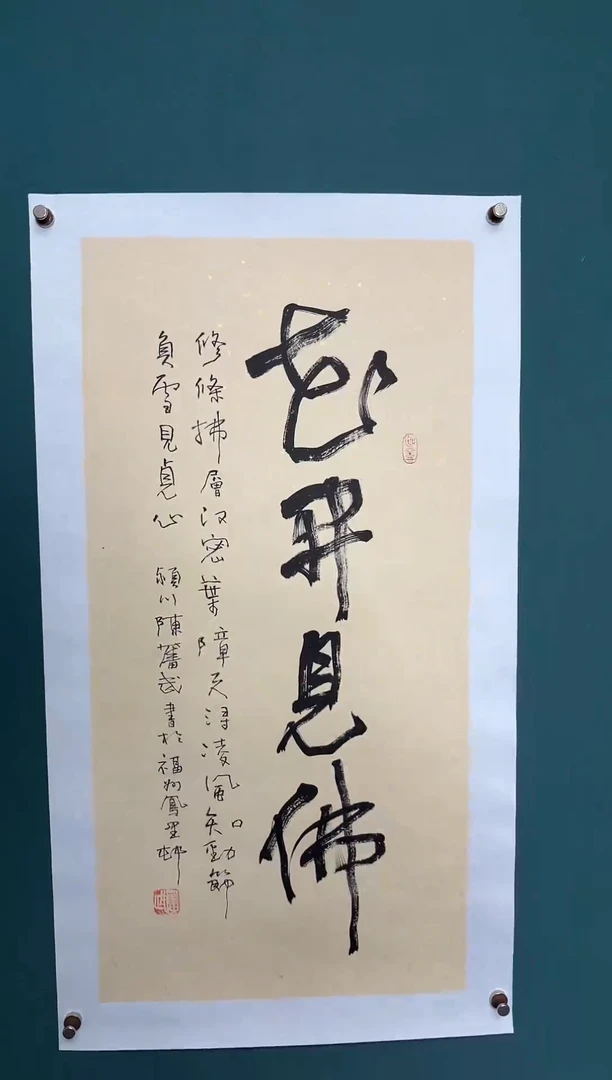 花开見佛
修條拂層汉密葉障天潯凌風知勁節
負雪見貞心 潁川陳奮武書於福州鳳 邨